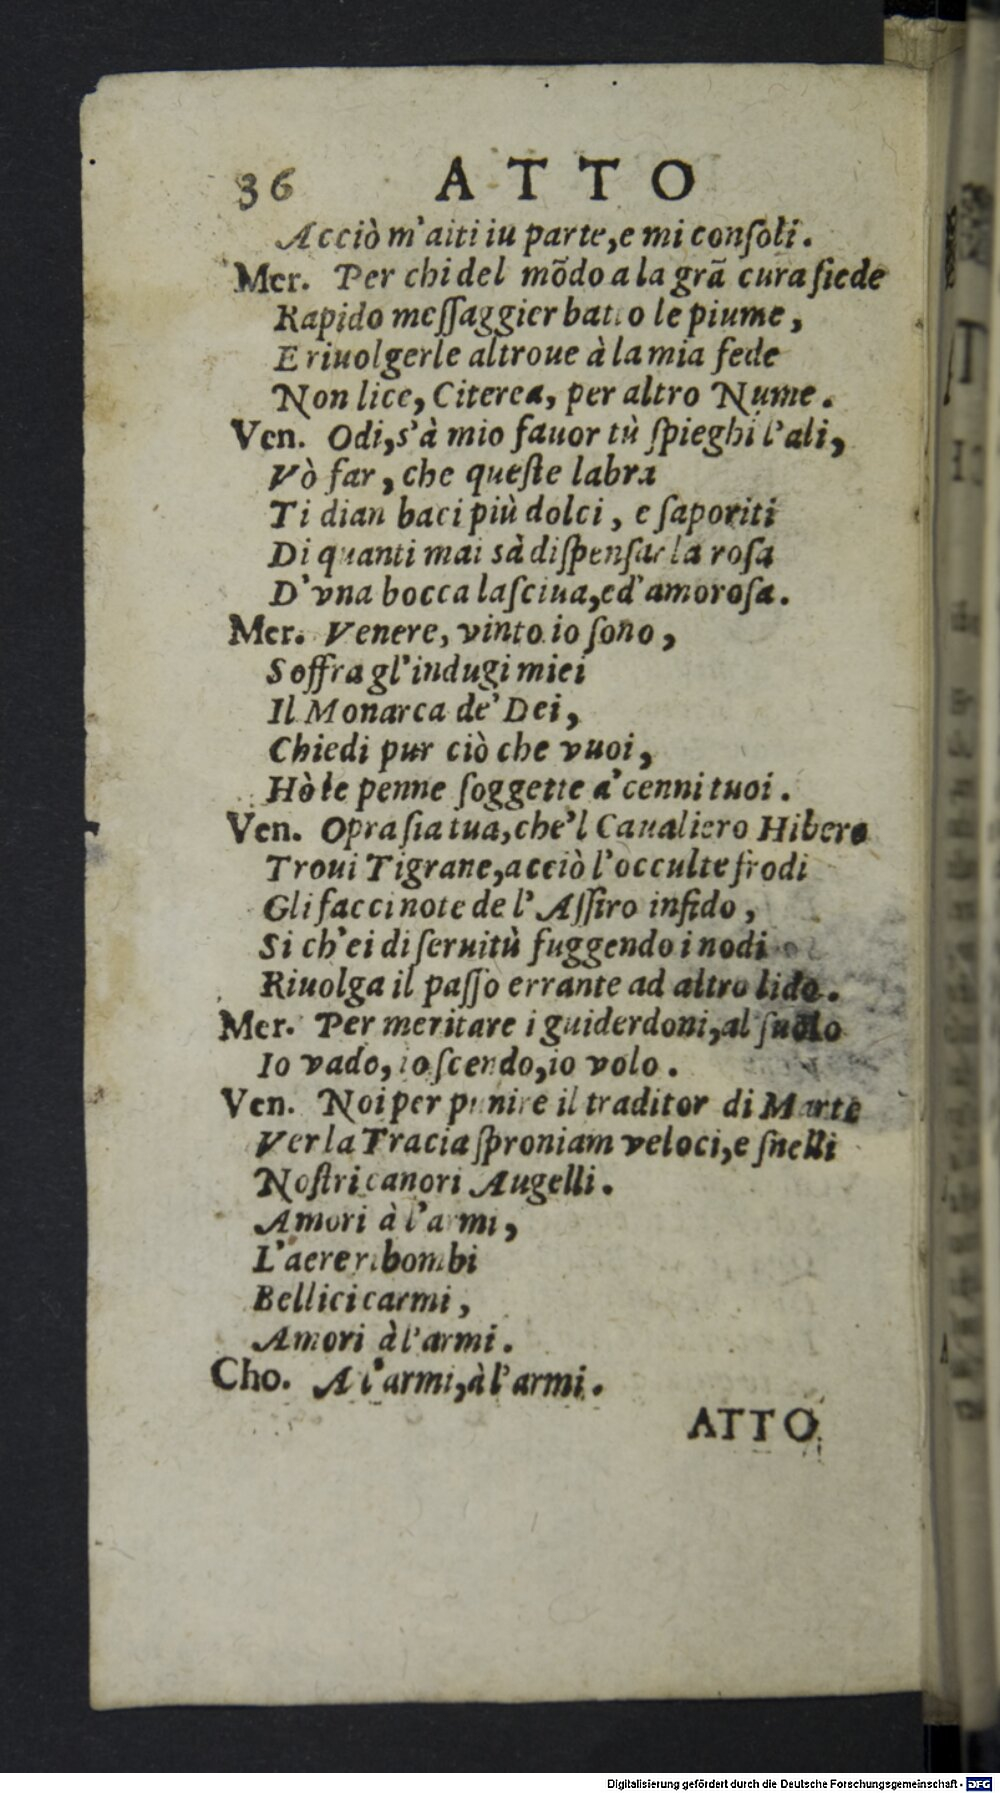 36 ATTO
Acciò m'aiti iu parte, e mi conſoli.
Mer. Per chi del mõdo a la grã cura ſiede
Rapido meſſaggier batto le piume,
E riuolgerle altroue à la mia fede
Non lice, Citerea, per altro Nume.
Ven. Odi, s'à mio fauor tù ſpieghi l'ali,
Vò far, che queſte labra
Ti dian baci più dolci, e ſaporiti
Di quanti mai sà diſpenſar la roſa
D'vna bocca laſciua, ed'amoroſa.
Mer. Venere, vinto io ſono,
Soffra gl'indugi miei
Il Monarca de' Dei,
Chiedi pur ciò che vuoi,
Hò le penne ſoggette a' cenni tuoi.
Ven. Opra ſia tua, che'l Caualiero Hibero
Troui Tigrane, acciò l'occulte frodi
Gli facci note de l'Aſſiro infido,
Si ch'ei di ſeruitù fuggendo i nodi
Riuolga il paſſo errante ad altro lido.
Mer. Per meritare i guiderdoni, al ſuolo
Io vado, io ſcendo, io volo.
Ven. Noi per punire il traditor di Marte
Ver la Tracia ſproniam veloci, e ſnelli
Noſtri canori Augelli.
Amori à l'armi,
L'aere ribombi
Bellici carmi,
Amori à l'armi.
Cho. A l'armi, à l'armi.
ATTO
Digitalisierung gefördert durch die Deutsche Forschungsgemeinschaft - DFG